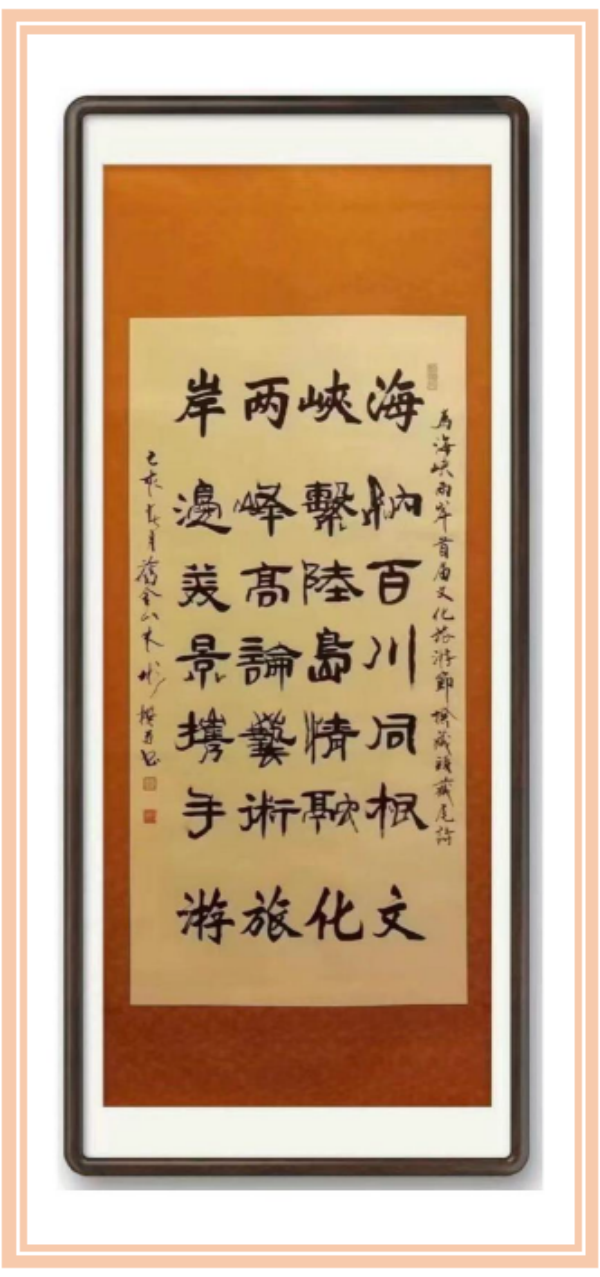 為海峽兩岸首届文化旅游節撰藏頭藏尾詩
海納百川同根文
峽繫陸島情化
两峰高論藝術旅
岸邊美景攜手游
己亥春月舊金山木彬撰并書